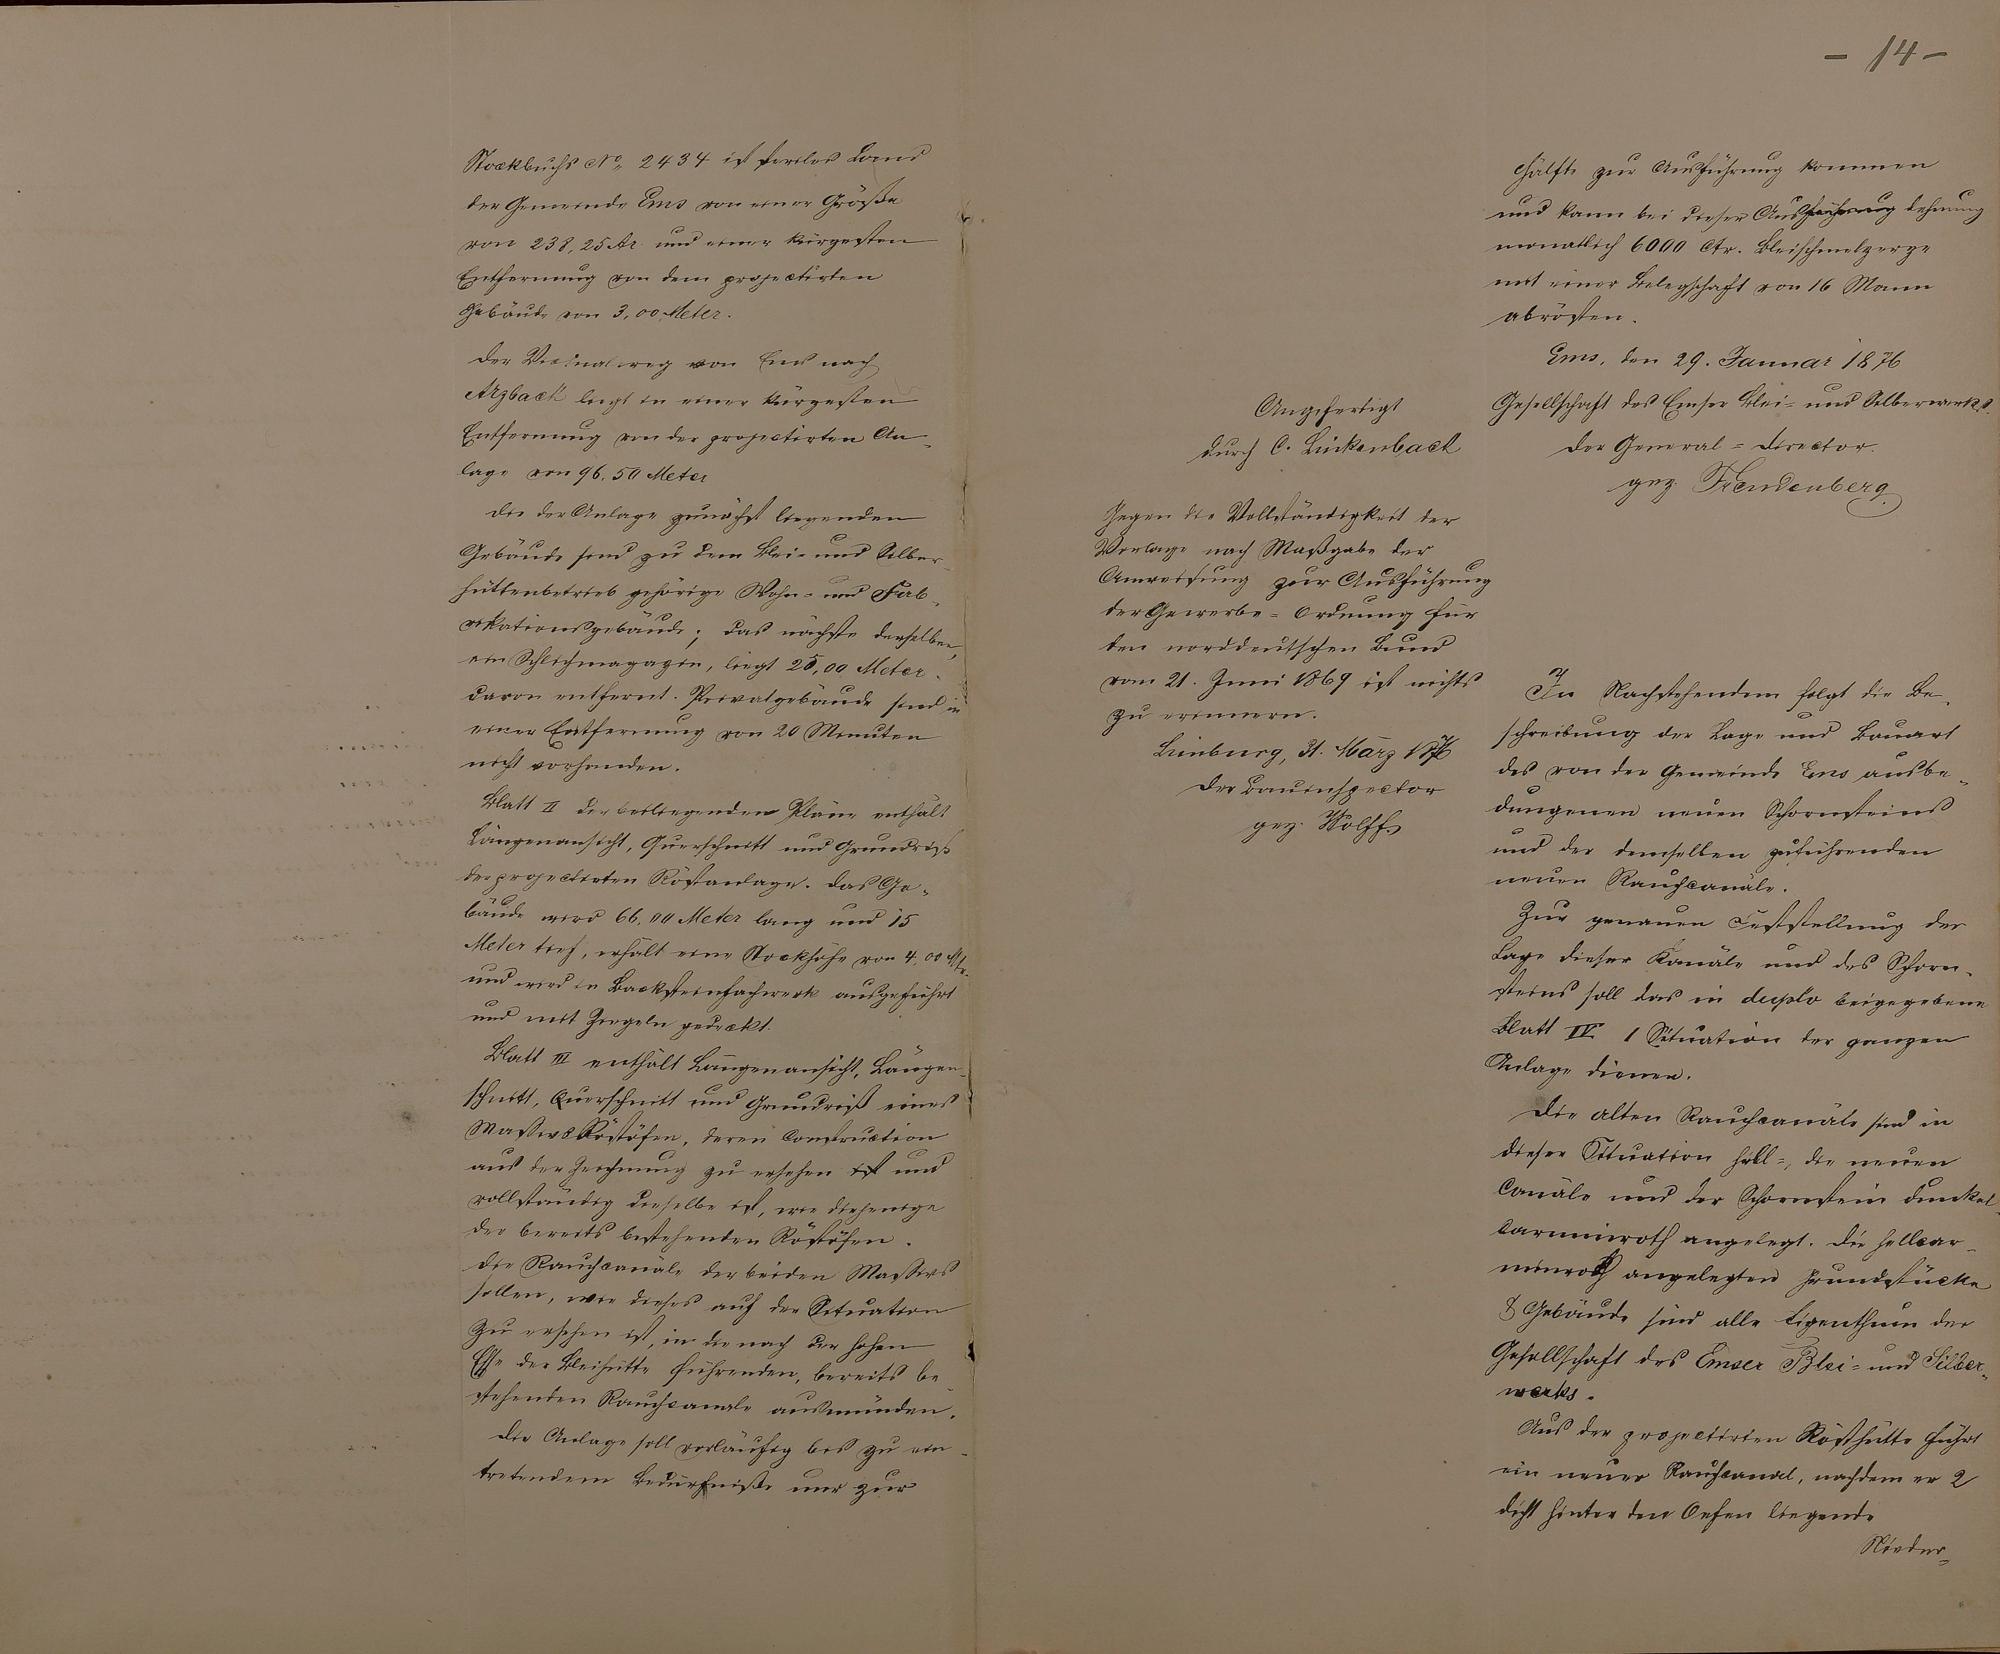 Stockbuchs No. 2434 ist steriles Land
der Gemeinde Ems von einer Größe
von 238,25 Ar und einer kürzesten
Entfernung von dem projectirten
Gebäude von 3,00 Meter.
Der Vicinalweg von Ems nach
Arzbach liegt in einer kürzesten
Entfernung von der projectirten An-
lage von 96,50 Meter
Die der Anlage zunächst liegenden
Gebäude sind zu dem Blei- und Silber-
hüttenbetrieb gehörige Wohn- und Fab-
rikationsgebäude; das nächste derselben,
ein Schlichmagazin, liegt 25,00 Meter
davon entfernt. Privatgebäude sind in
einer Entfernung von 20 Minuten
nicht vorhanden.
Blatt II der beiliegenden Pläne enthält
Längenansicht, Querschnitt und Grundriß
der projectirten Röstanlage. Das Ge-
bäude wird 66,00 Meter lang und 15
Meter tief, erhält eine Stockhöhe von 4,00 Mtr.
und wird in Backsteinfachwerk ausgeführt
und mit Ziegeln gedeckt.
Blatt III enthält Längenansicht, Längen-
schnitt, Querschnitt und Grundriß eines
Massivs Röstöfen, deren Construction
aus der Zeichnung zu ersehen ist und
vollständig dieselbe ist, wie diejenige
der bereits bestehenden Röstöfen.
Die Rauchcanäle der beiden Massivs
sollen, wie dieses auf der Situation
zu ersehen ist, in die nach der hohen
Esse der Bleihütte führenden, bereits be-
stehenden Rauchcanäle ausmünden.
Die Anlage soll vorläufig bis zu ein-
tretendem Bedürfniße nur zur
- 14 -
Hälfte zur Ausführung kommen
und kann bei dieser Ausführung dehnung
monatlich 6000 Ctr. Bleischmelzerze
mit einer Belegschaft von 16 Mann
abrösten.
Ems, den 29. Januar 1876
Gesellschaft des Emser Blei- und Silberwerks.
Der General-Director.
gez. Freudenberg
Angefertigt
durch C. Linkenbach
Gegen die Vollständigkeit der
Vorlage nach Maßgabe der
Anweisung zur Ausführung
der Gewerbe-Ordnung für
den norddeutschen Bund
vom 21. Juni 1869 ist nichts
zu erinnern.
Limburg, 31. März 1876
Der Bauinspector
gez. Wolff
In Nachstehendem folgt die Be-
schreibung der Lage und Bauart
des von der Gemeinde Ems ausbe-
dungenen neuen Schornsteins
und der demselben zuführenden
neuen Rauchcanäle.
Zur genauen Feststellung der
Lage dieser Kanäle und des Schorn-
steins soll das in duplo beigegebene
Blatt IV Situation der ganzen
Anlage dienen.
Die alten Rauchcanäle sind in
dieser Situation hell-, die neuen
Canäle und der Schornstein dunkel-
carminroth angelegt. Die hellcar-
minroth angelegten Grundstücke
& Gebäude sind alle Eigenthum der
Gesellschaft des Emser Blei- und Silber-
werks.
Aus der projectirten Rösthütte führt
ein neuer Rauchcanal, nachdem er 2
dicht hinter den Oefen liegende
Nieder-